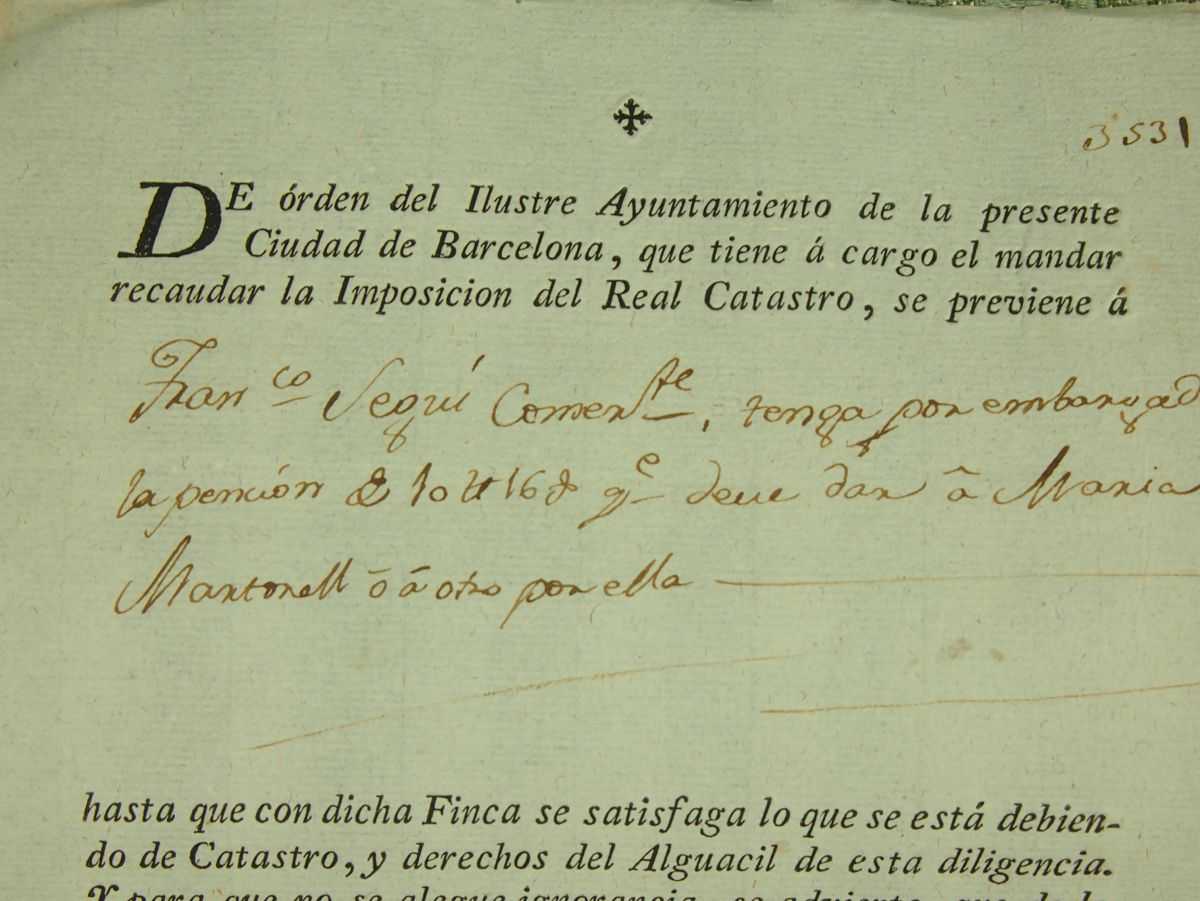 3531
DE órden del Ilustre Ayuntamiento de la presente
Ciudad de Barcelona, que tiene á cargo el mandar
recaudar la Imposicion del Real Catastro, se previene á
Franco Seguí Comerte, tenga por embargad
la pención de 10 ₶ 16 qe deve dar â Maria
Martorell ô â otro por ella
hasta que con dicha Finca se satisfaga lo que se está debien-
do de Catastro, y derechos del Alguacil de esta diligencia.
Y para que no se alegue ignorancia, se advierte, que de la